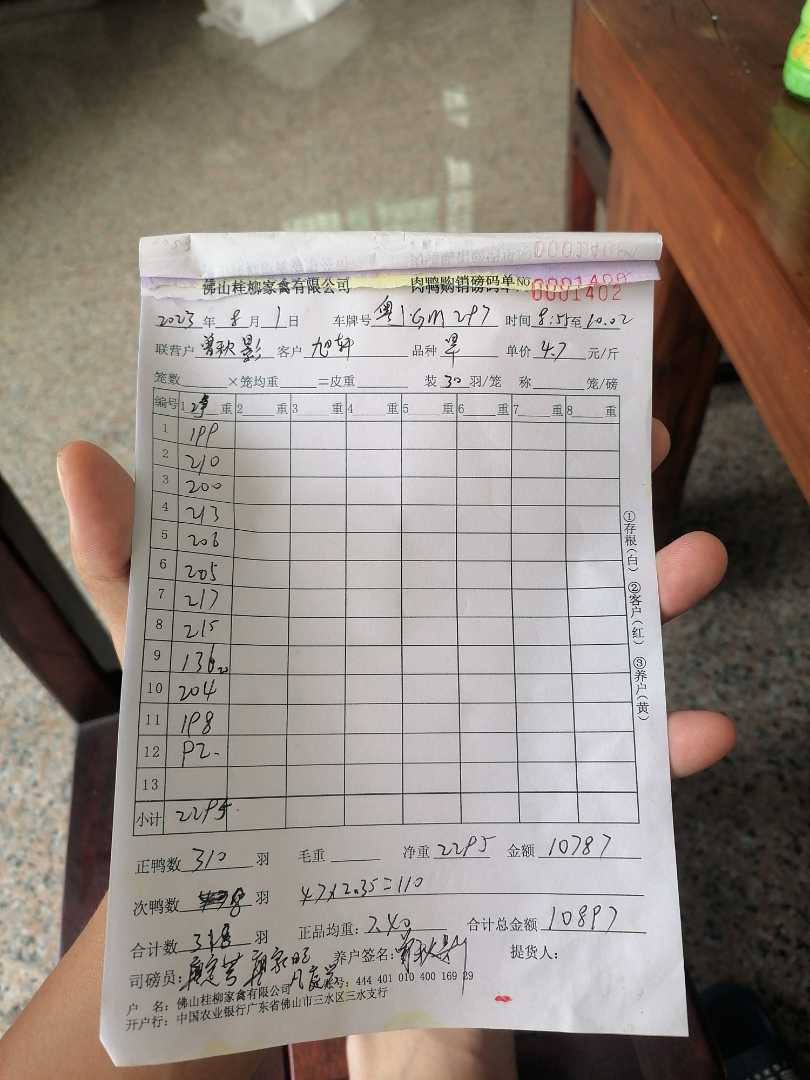 佛山桂柳家禽有限公司 肉鸭购销磅码单 NO 0001402
2023 年 8 月 1 日 车牌号 粤J·GM297 时间 8:55 至 10.02
联营户 曾秋影 客户 旭轩 品种 单价 4.7 元/斤
笼数 ×笼均重 =皮重 装 30 羽/笼 称 笼/磅
编号 1 净 重 2 重 3 重 4 重 5 重 6 重 7 重 8 重
1 199
2 210
3 200
4 213
5 206
6 205
7 217
8 215
9 136 20
10 204
11 198
12 92
13
小计 2295
正鸭数 310 羽 毛重 净重 2295 金额 10787
次鸭数 8 羽 47×2.35=110
合计数 318 羽 正品均重: 7.40 合计总金额 10897
司磅员: 养户签名: 曾秋影 提货人:
户 名: 佛山桂柳家禽有限公司 账号: 444 401 010 400 169 29
开户行: 中国农业银行广东省佛山市三水区三水支行
①存根(白) ②客户(红) ③养户(黄)